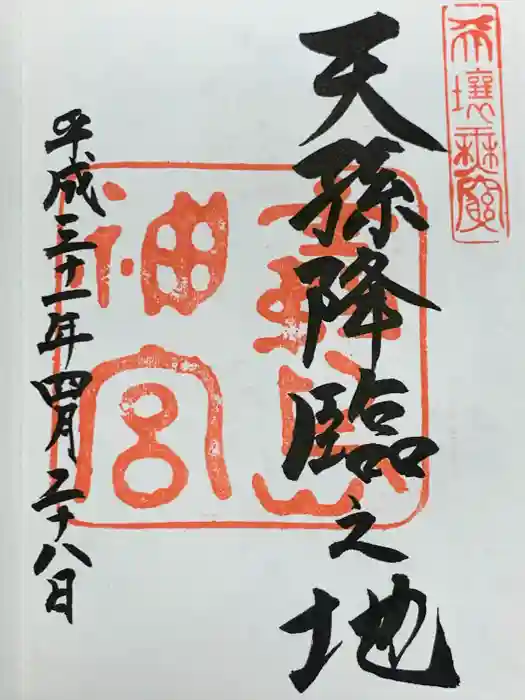 天孫降臨之地
霧島
神宮
平成三十一年四月二十八日